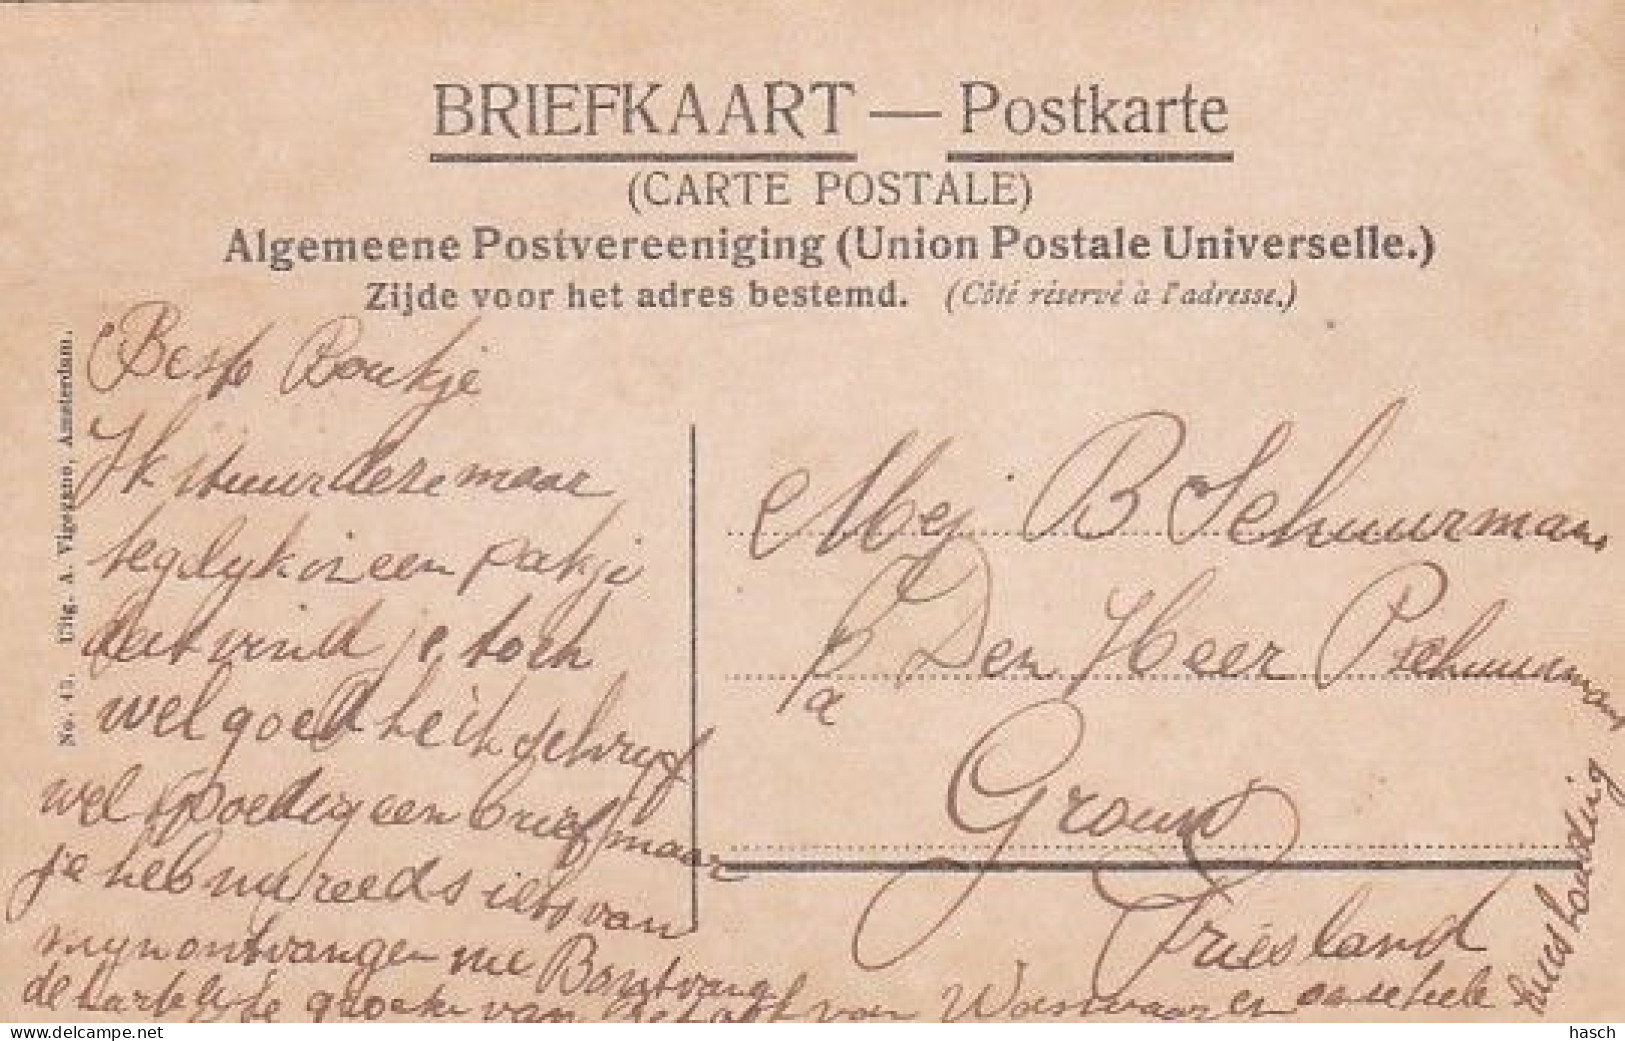 BRIEFKAART — Postkarte
(CARTE POSTALE)
Algemeene Postvereeniging (Union Postale Universelle.)
Zijde voor het adres bestemd. (Côté réservé à l'adresse.)
No. 43. Uitg. A. Vigevano, Amsterdam.
Beste Boukje
Ik stuur deze maar
tegelyk in een pakje
dat vind je toch
wel goed he ik schryf
wel spoedig een brief maar
je heb nu reeds iets van
myn ontvangen nu B ontvang
de hartelyke groeten van
van en geheele
huishouding
Mej B Schuurmans
p/a Den Heer P Schuurmans
Grouw
Friesland
hasch